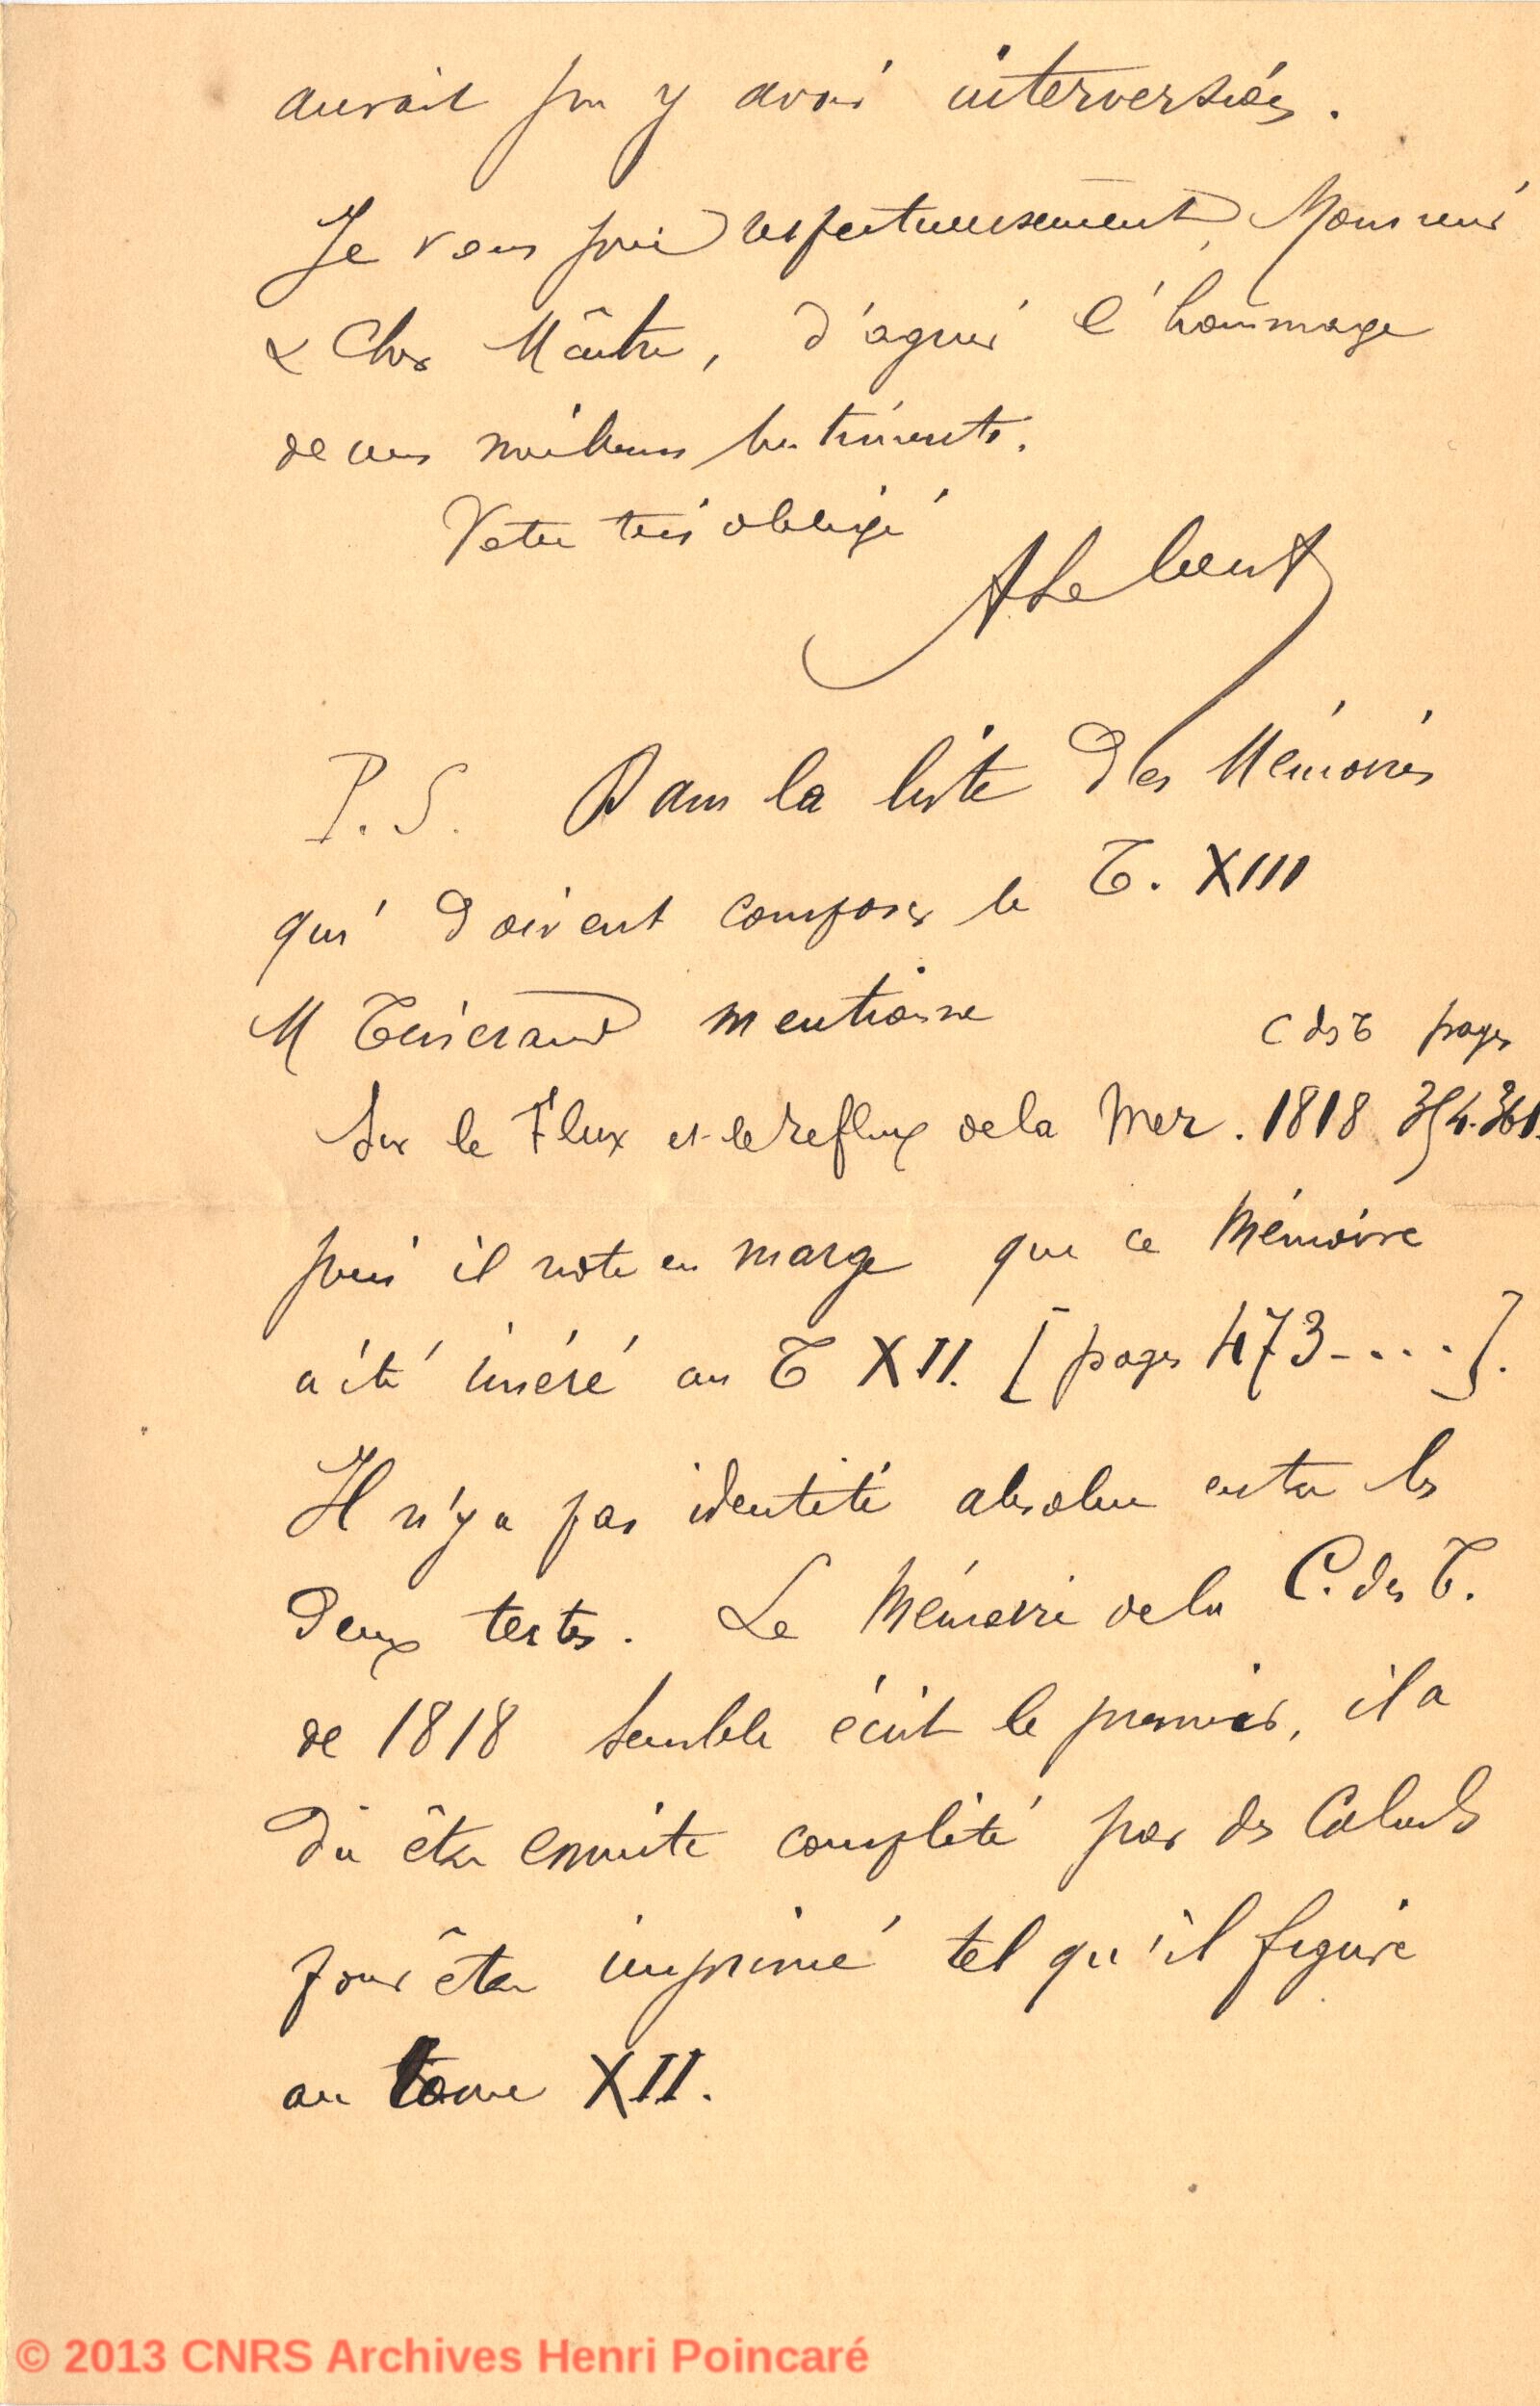 aurait pu y avoir interversion.
Je vous prie respectueusement, Monsieur
& Cher Maître, d'agréer l'hommage
de mes meilleurs sentiments.
Votre très obligé
A Lebeuf
P.S. Dans la liste des Mémoires
qui doivent composer le T. XIII
M Tisserand mentionne
C ds T pages
Sur le Flux et le reflux de la Mer. 1818 354.361.
puis il note en marge que ce Mémoire
a été inséré au T XII. [pages 473-....].
Il n'y a pas identité absolue entre les
deux textes. Le Mémoire de la C. des T.
de 1818 semble écrit le premier, il a
dû être ensuite complété par des Calculs
pour être imprimé tel qu'il figure
au tome XII.
© 2013 CNRS Archives Henri Poincaré